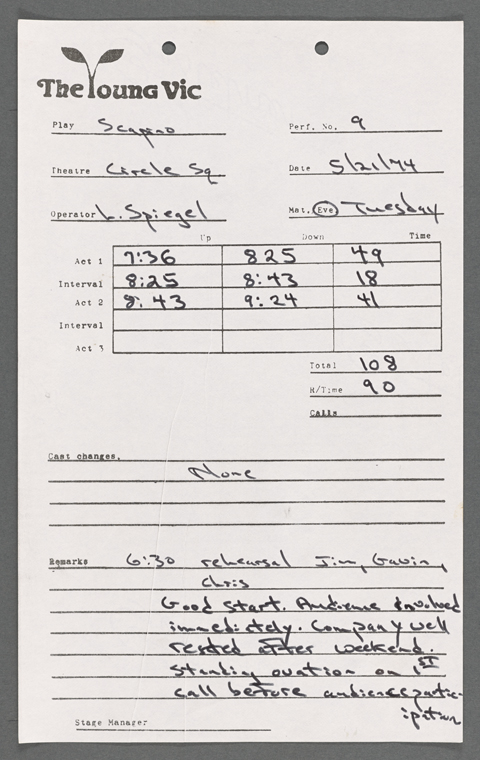 The Young Vic
Play Scapino
Perf. No. 9
Theatre Circle Sq
Date 5/21/74
Operator L. Spiegel
Mat. Eve Tuesday
Up Down Time
Act 1 7:36 825 49
Interval 8:25 8:43 18
Act 2 8:43 9:24 41
Interval
Act 3
Total 108
R/Time 90
Calls
Cast changes.
None
Remarks 6:30 rehearsal Jim, Gavin,
Chris
Good start. Audience involved
immediately. Company well
rested after weekend.
Standing ovation on 1ST
call before audience partic-
ipation
Stage Manager